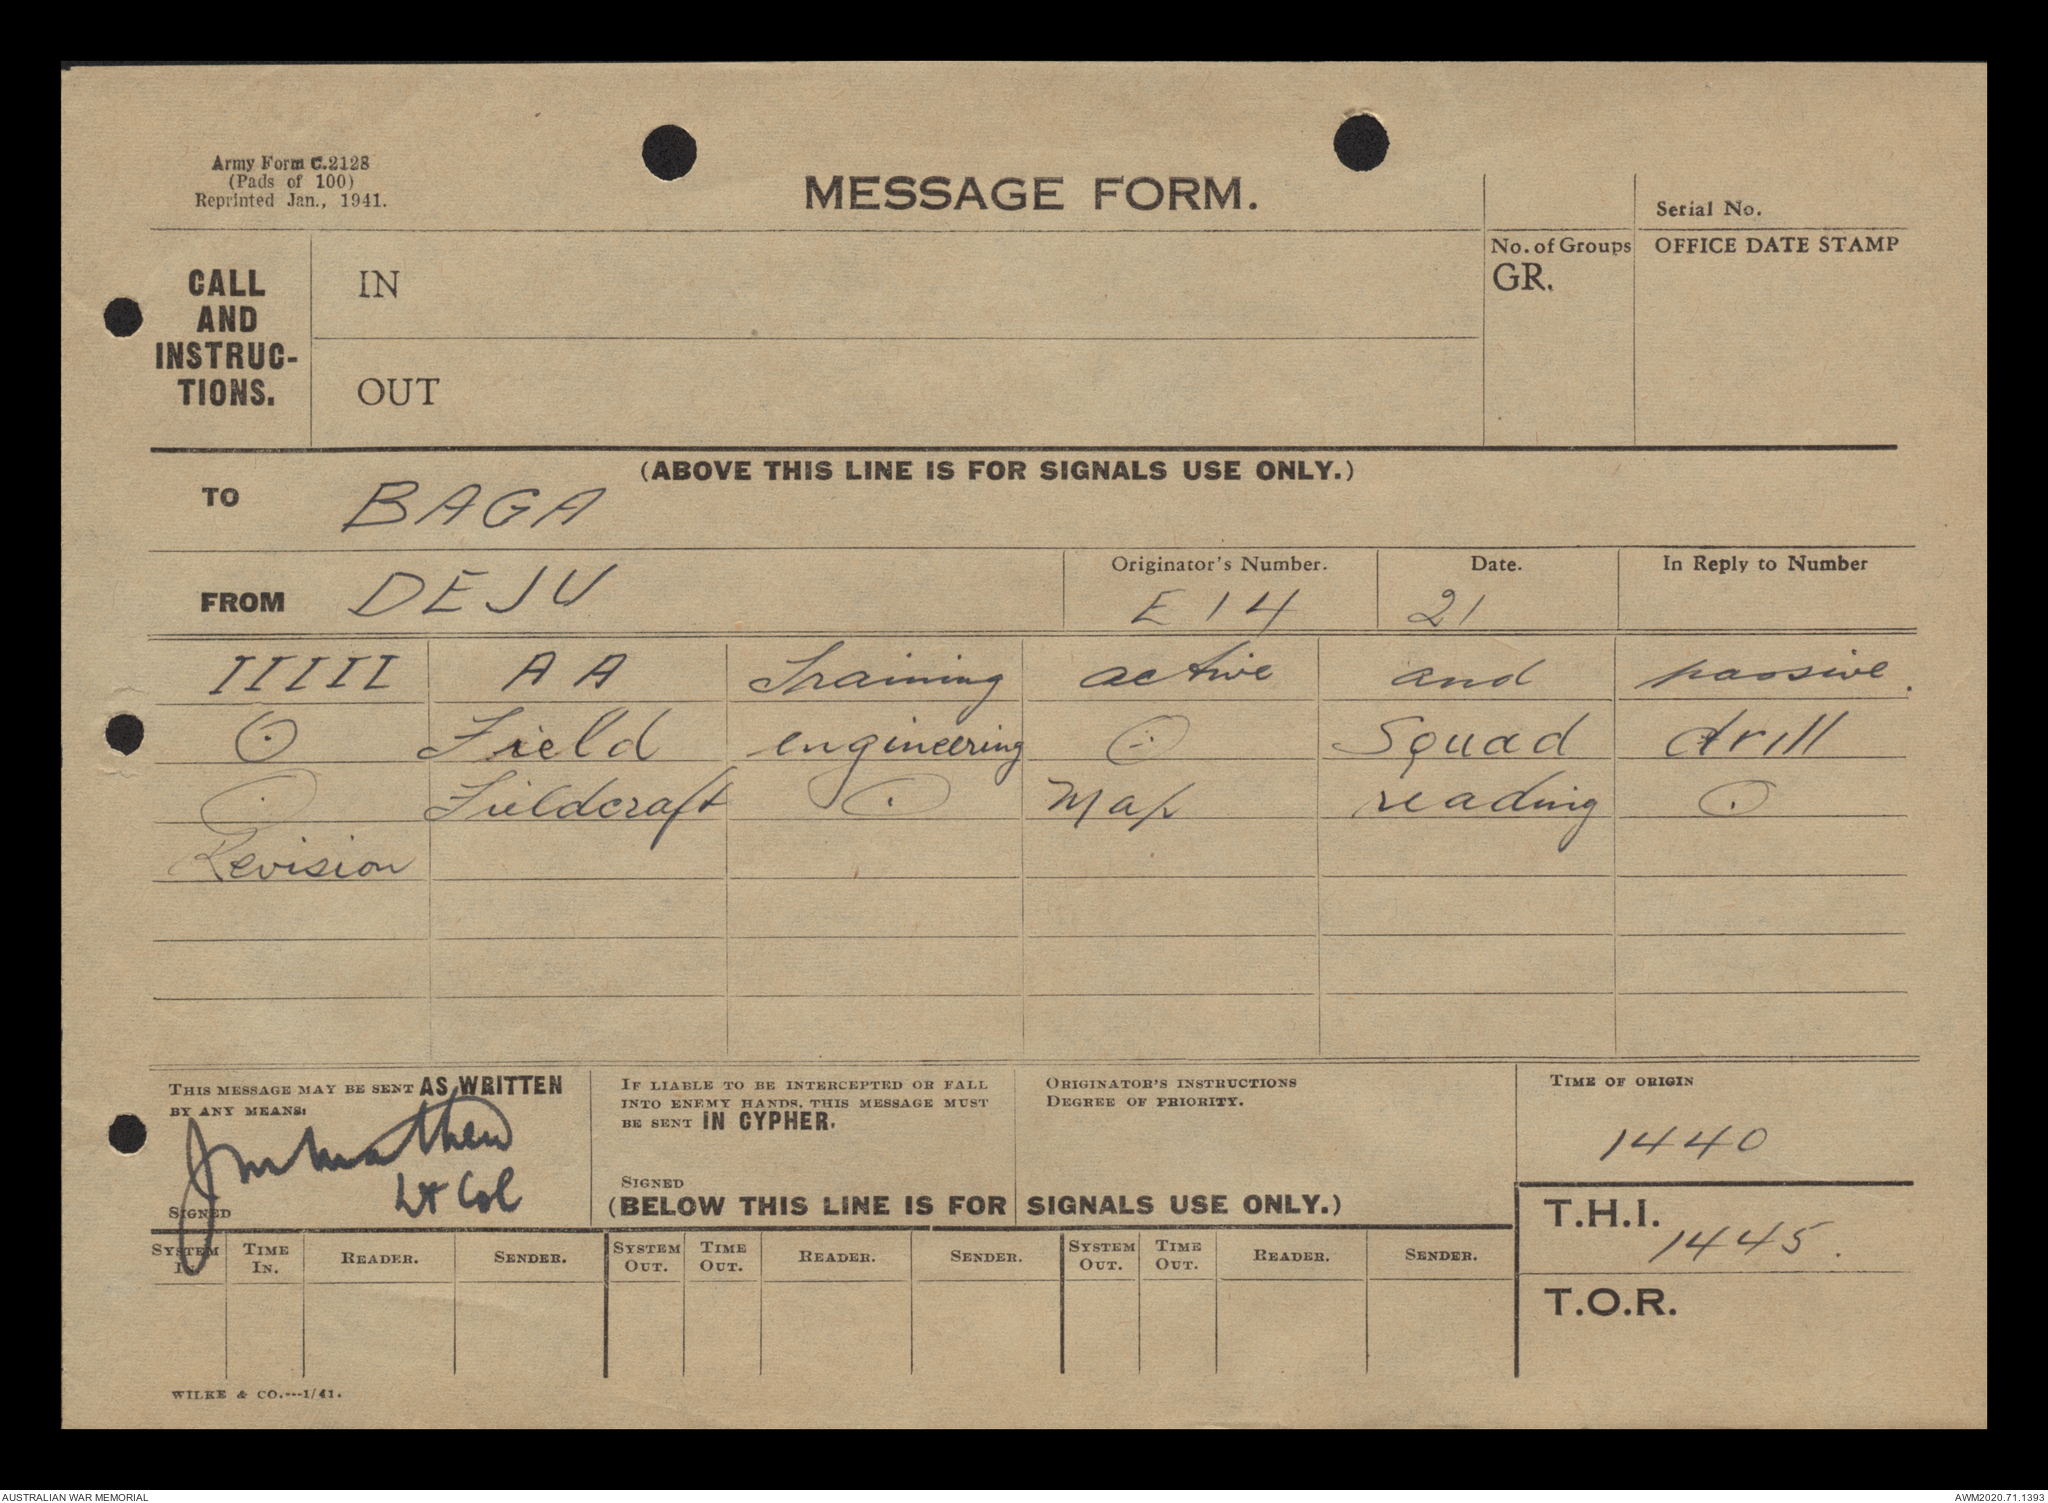 Army Form C.2128
(Pads of 100)
Reprinted Jan., 1941.
MESSAGE FORM.
Serial No.
CALL
AND
INSTRUC-
TIONS.
IN
OUT
No. of Groups
GR.
OFFICE DATE STAMP
(ABOVE THIS LINE IS FOR SIGNALS USE ONLY.)
TO BAGA
FROM DEJU
Originator's Number. Date. In Reply to Number
E 14 21
IIIII AA Training active and passive.
⊙ Field engineering ⊙ Squad drill
⊙ Fieldcraft ⊙ Map reading ⊙
Revision
THIS MESSAGE MAY BE SENT AS WRITTEN
BY ANY MEANS:
Lt Col
SIGNED
IF LIABLE TO BE INTERCEPTED OR FALL
INTO ENEMY HANDS, THIS MESSAGE MUST
BE SENT IN CYPHER.
SIGNED
ORIGINATOR'S INSTRUCTIONS
DEGREE OF PRIORITY.
TIME OF ORIGIN
1440
(BELOW THIS LINE IS FOR SIGNALS USE ONLY.)
T.H.I.
1445.
T.O.R.
SYSTEM IN. TIME IN. READER. SENDER. SYSTEM OUT. TIME OUT. READER. SENDER. SYSTEM OUT. TIME OUT. READER. SENDER.
WILKE & CO.---1/41.
AUSTRALIAN WAR MEMORIAL
AWM2020.71.1393